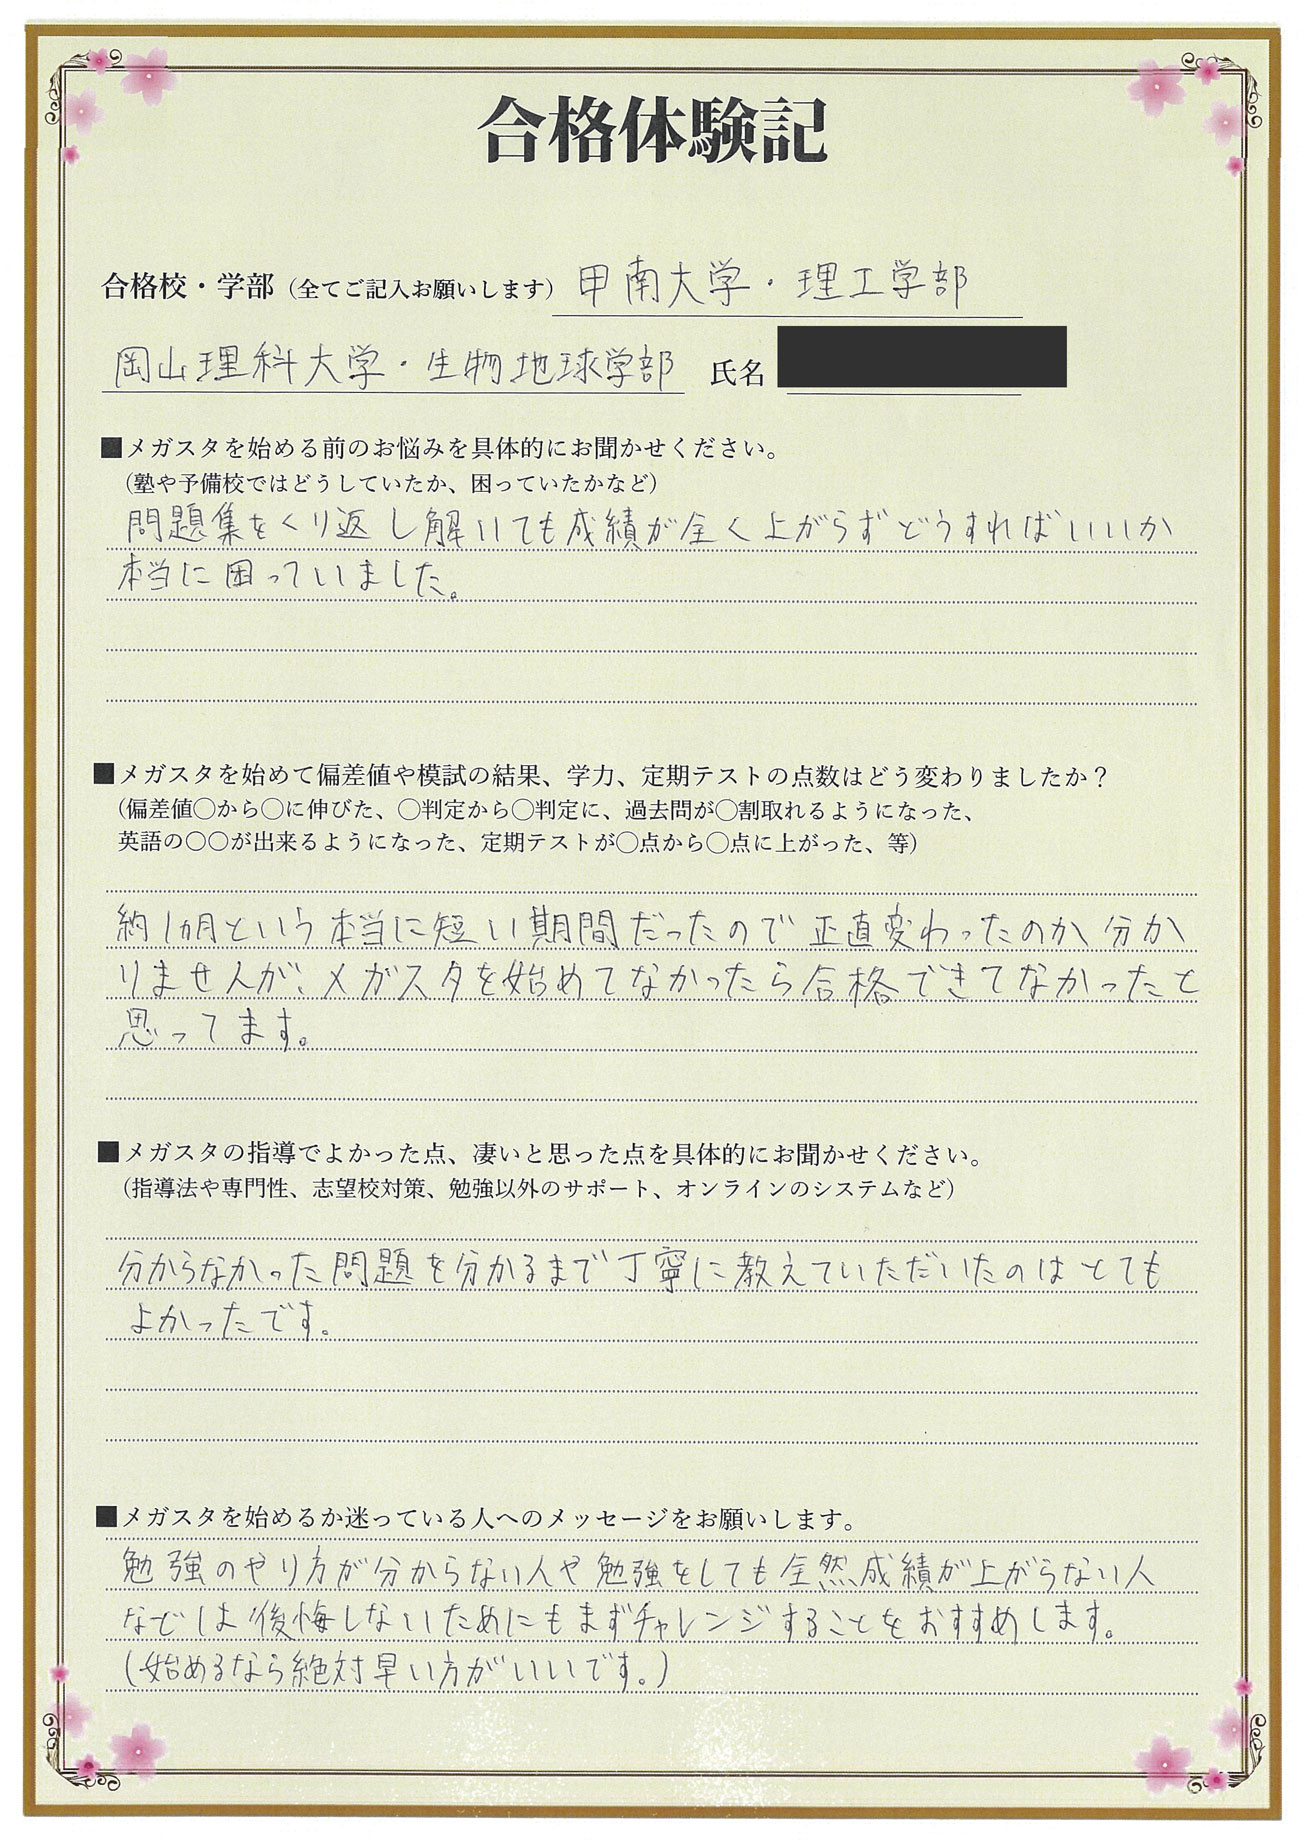 合格体験記
合格校・学部（全てご記入お願いします）甲南大学・理工学部
岡山理科大学・生物地球学部 氏名
■メガスタを始める前のお悩みを具体的にお聞かせください。
（塾や予備校ではどうしていたか、困っていたかなど）
問題集をくり返し解いても成績が全く上がらずどうすればいいか
本当に困っていました。
■メガスタを始めて偏差値や模試の結果、学力、定期テストの点数はどう変わりましたか？
（偏差値〇から〇に伸びた、〇判定から〇判定に、過去問が〇割取れるようになった、
英語の〇〇が出来るようになった、定期テストが〇点から〇点に上がった、等）
約1ヵ月という本当に短い期間だったので正直変わったのか分か
りませんが、メガスタを始めてなかったら合格できてなかったと
思ってます。
■メガスタの指導でよかった点、凄いと思った点を具体的にお聞かせください。
（指導法や専門性、志望校対策、勉強以外のサポート、オンラインのシステムなど）
分からなかった問題を分かるまで丁寧に教えていただいたのはとても
よかったです。
■メガスタを始めるか迷っている人へのメッセージをお願いします。
勉強のやり方が分からない人や勉強をしても全然成績が上がらない人
などは後悔しないためにもまずチャレンジすることをおすすめします。
（始めるなら絶対早い方がいいです。）